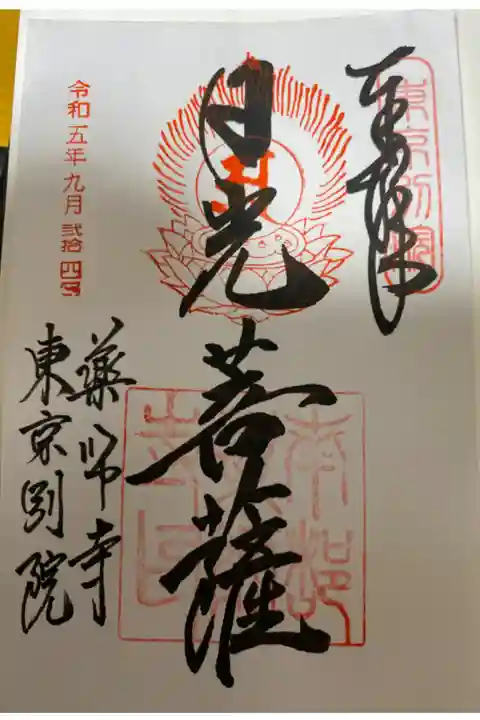 奉拝
日光
菩薩
令和五年九月弐拾四日
薬師寺
東京別院